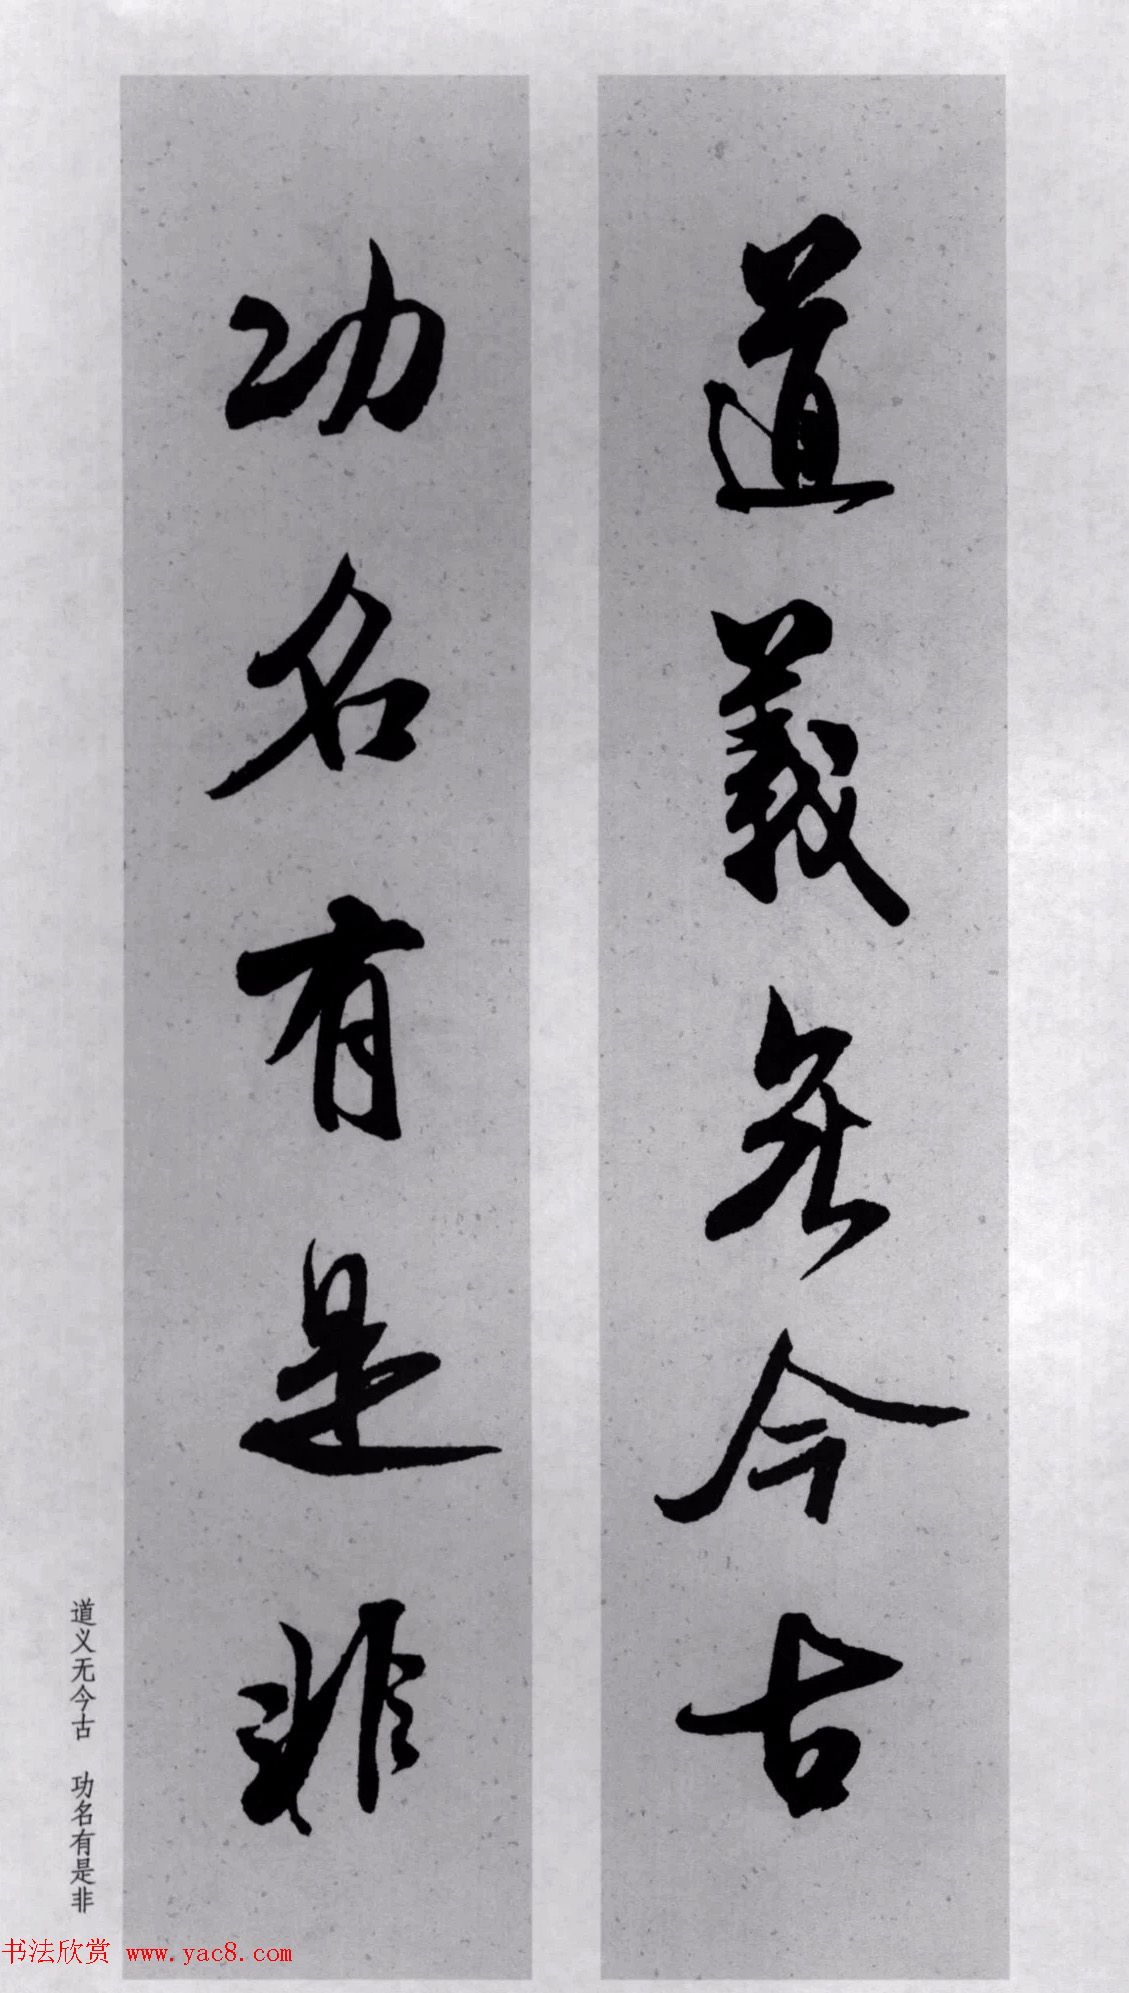 道義无今古
功名有是非
道义无今古 功名有是非
书法欣赏 www.yac8.com